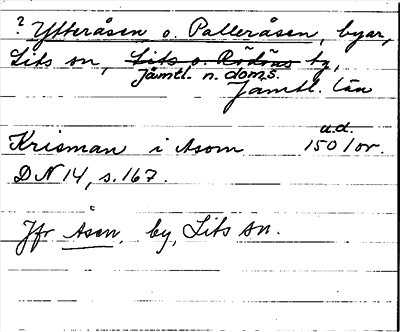 ? Ytteråsen o. Palleråsen, byar,
Lits sn, Lits o. Rödöns tg,
Jämtl. n. doms.
Jämtl. län
Krisman i Asom u.d. 1501 or.
DN 14, s. 167.
Jfr Åsen, by, Lits sn.